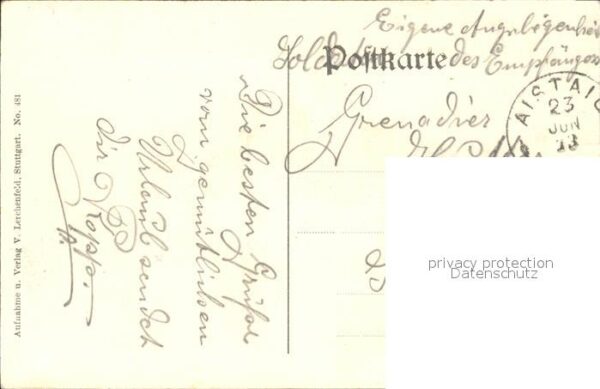 Eigene Angelegenheit
Soldaten des Empfängers
Postkarte
Grenadier
AISTAIG
23
JUN
13
Die besten Grüße
vom gemütlichen
Urlaub sendet
dir
Kopp.
Aufnahme u. Verlag V. Lerchenfeld, Stuttgart. No. 481
privacy protection
Datenschutz